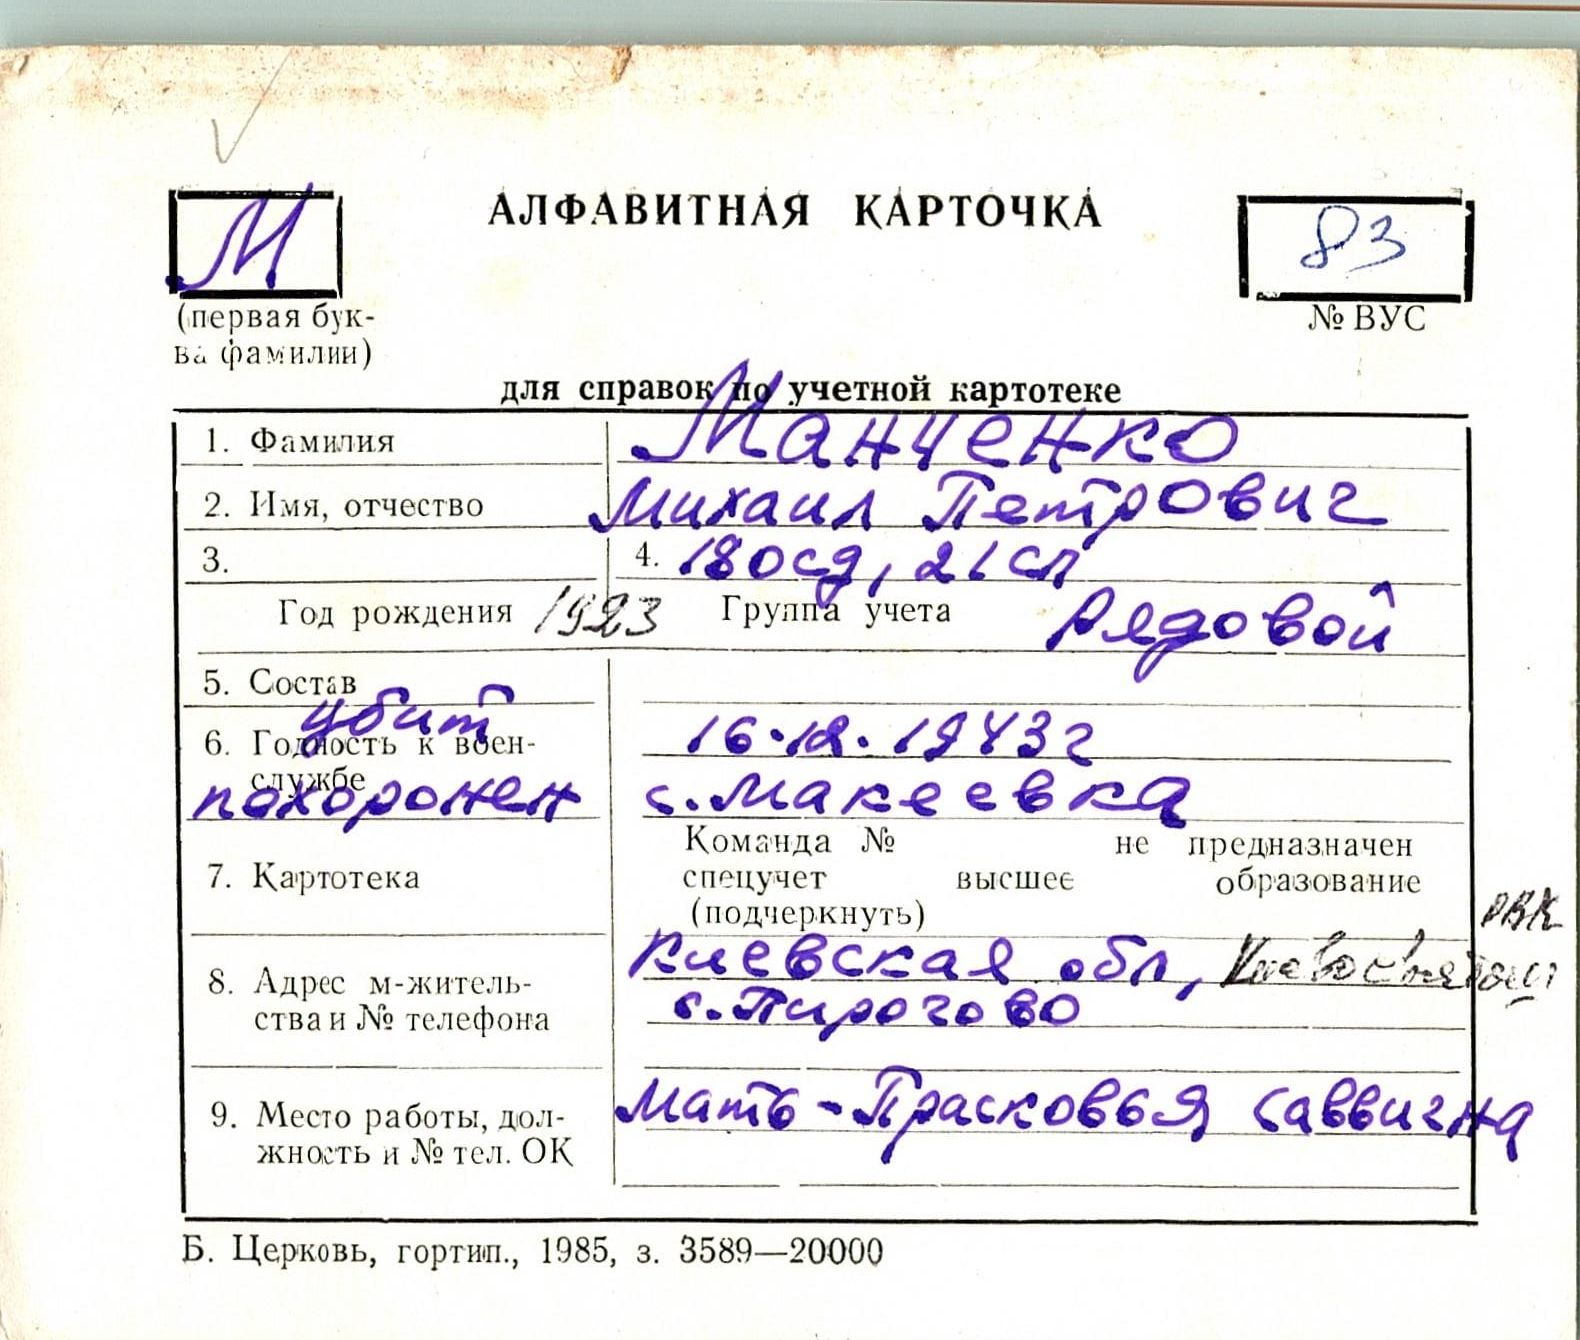 М
АЛФАВИТНАЯ КАРТОЧКА
83
(первая бук-
ва фамилии)
№ ВУС
для справок по учетной картотеке
1. Фамилия Манченко
2. Имя, отчество Михаил Петрович
3. 4. 180сд, 21сп
Год рождения 1923 Группа учета Рядовой
5. Состав
убит 16.12.1943г
6. Годность к воен-
службе
похоронен с. Макеевка
Команда № не предназначен
7. Картотека спецучет высшее образование
(подчеркнуть)
РВК
Киевская обл, Киевосвятош
8. Адрес м-житель-
ства и № телефона с. Пирогово
9. Место работы, дол-
жность и № тел. ОК Мать - Прасковья Саввична
Б. Церковь, гортип., 1985, з. 3589—20000